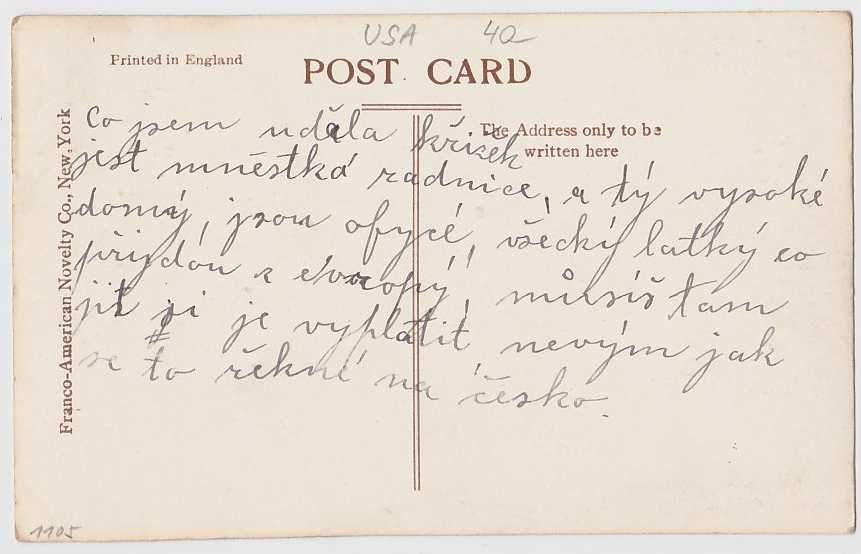 USA 40
Printed in England
POST CARD
The Address only to be
written here
Franco-American Novelty Co., New York
Co jsem uděla křižek
jest mněstká radnice, a tý vysoké
domý, jsou ofycé, všécký latký co
přijdou z évropý, můsíš tam
jít si je vyplatit nevým jak
se to řekné na česko.
1105